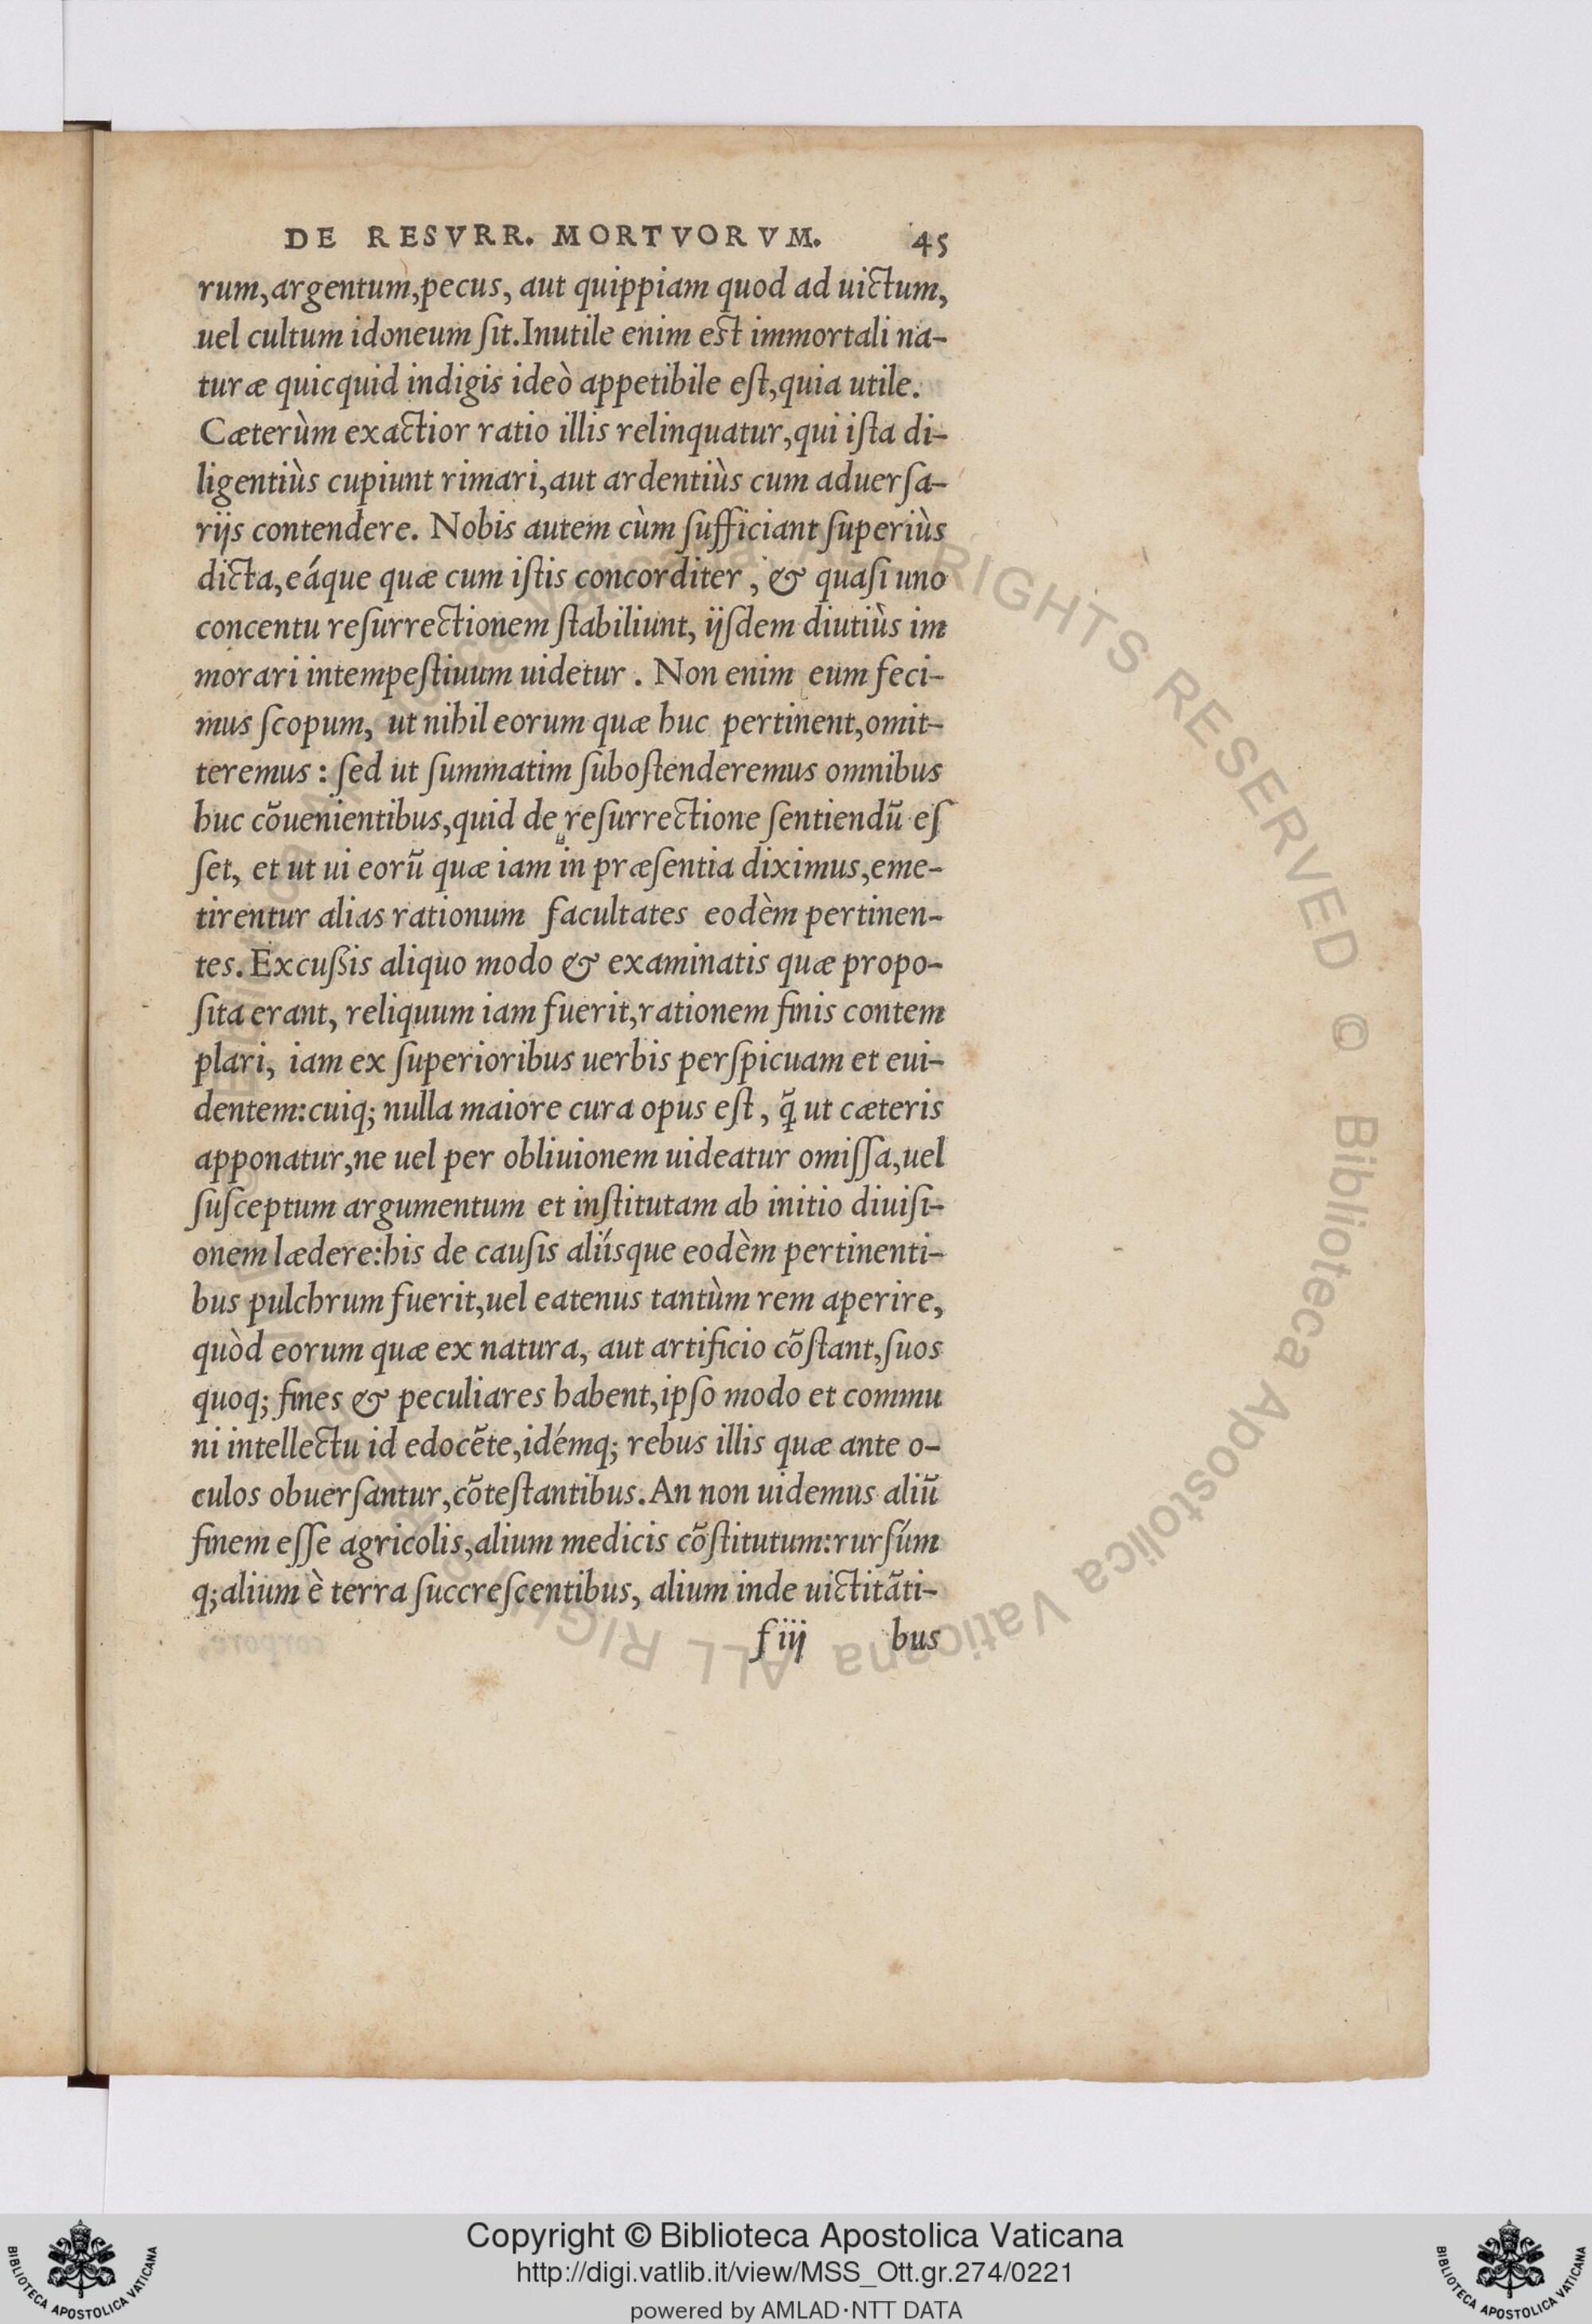 DE RESVRR. MORTVORVM. 45
rum,argentum,pecus, aut quippiam quod ad uictum,
uel cultum idoneum ſit.Inutile enim est immortali na-
turæ quicquid indigis ideò appetibile eſt,quia utile.
Cæterùm exactior ratio illis relinquatur,qui iſta di-
ligentiùs cupiunt rimari,aut ardentiùs cum aduerſa-
rijs contendere. Nobis autem cùm ſufficiant ſuperiùs
dicta,eáque quæ cum iſtis concorditer, & quaſi uno
concentu reſurrectionem ſtabiliunt, ijſdem diutiùs im
morari intempeſtiuum uidetur. Non enim eum feci-
mus ſcopum, ut nihil eorum quæ huc pertinent,omit-
teremus: ſed ut ſummatim ſuboſtenderemus omnibus
huc cōuenientibus,quid de reſurrectione ſentiendū eſ
ſet, et ut ui eorū quæ iam in præſentia diximus,eme-
tirentur alias rationum facultates eodèm pertinen-
tes. Excuſsis aliquo modo & examinatis quæ propo-
ſita erant, reliquum iam fuerit,rationem finis contem
plari, iam ex ſuperioribus uerbis perſpicuam et eui-
dentem:cuiq; nulla maiore cura opus eſt, q̄ ut cæteris
apponatur,ne uel per obliuionem uideatur omiſſa,uel
ſuſceptum argumentum et inſtitutam ab initio diuiſi-
onem lædere:his de cauſis alíſsque eodèm pertinenti-
bus pulchrum fuerit,uel eatenus tantùm rem aperire,
quòd eorum quæ ex natura, aut artificio cōſtant,ſuos
quoq; fines & peculiares habent,ipſo modo et commu
ni intellectu id edocēte,idémq; rebus illis quæ ante o-
culos obuerſantur,cōteſtantibus.An non uidemus aliū
finem eſſe agricolis,alium medicis cōſtitutum:rurſúm
q;alium è terra ſuccreſcentibus, alium inde uictitāti-
f iij bus
ALL RIGHTS RESERVED © Biblioteca Apostolica Vaticana
Copyright © Biblioteca Apostolica Vaticana
http://digi.vatlib.it/view/MSS_Ott.gr.274/0221
powered by AMLAD·NTT DATA
BIBLIOTECA APOSTOLICA VATICANA
BIBLIOTECA APOSTOLICA VATICANA